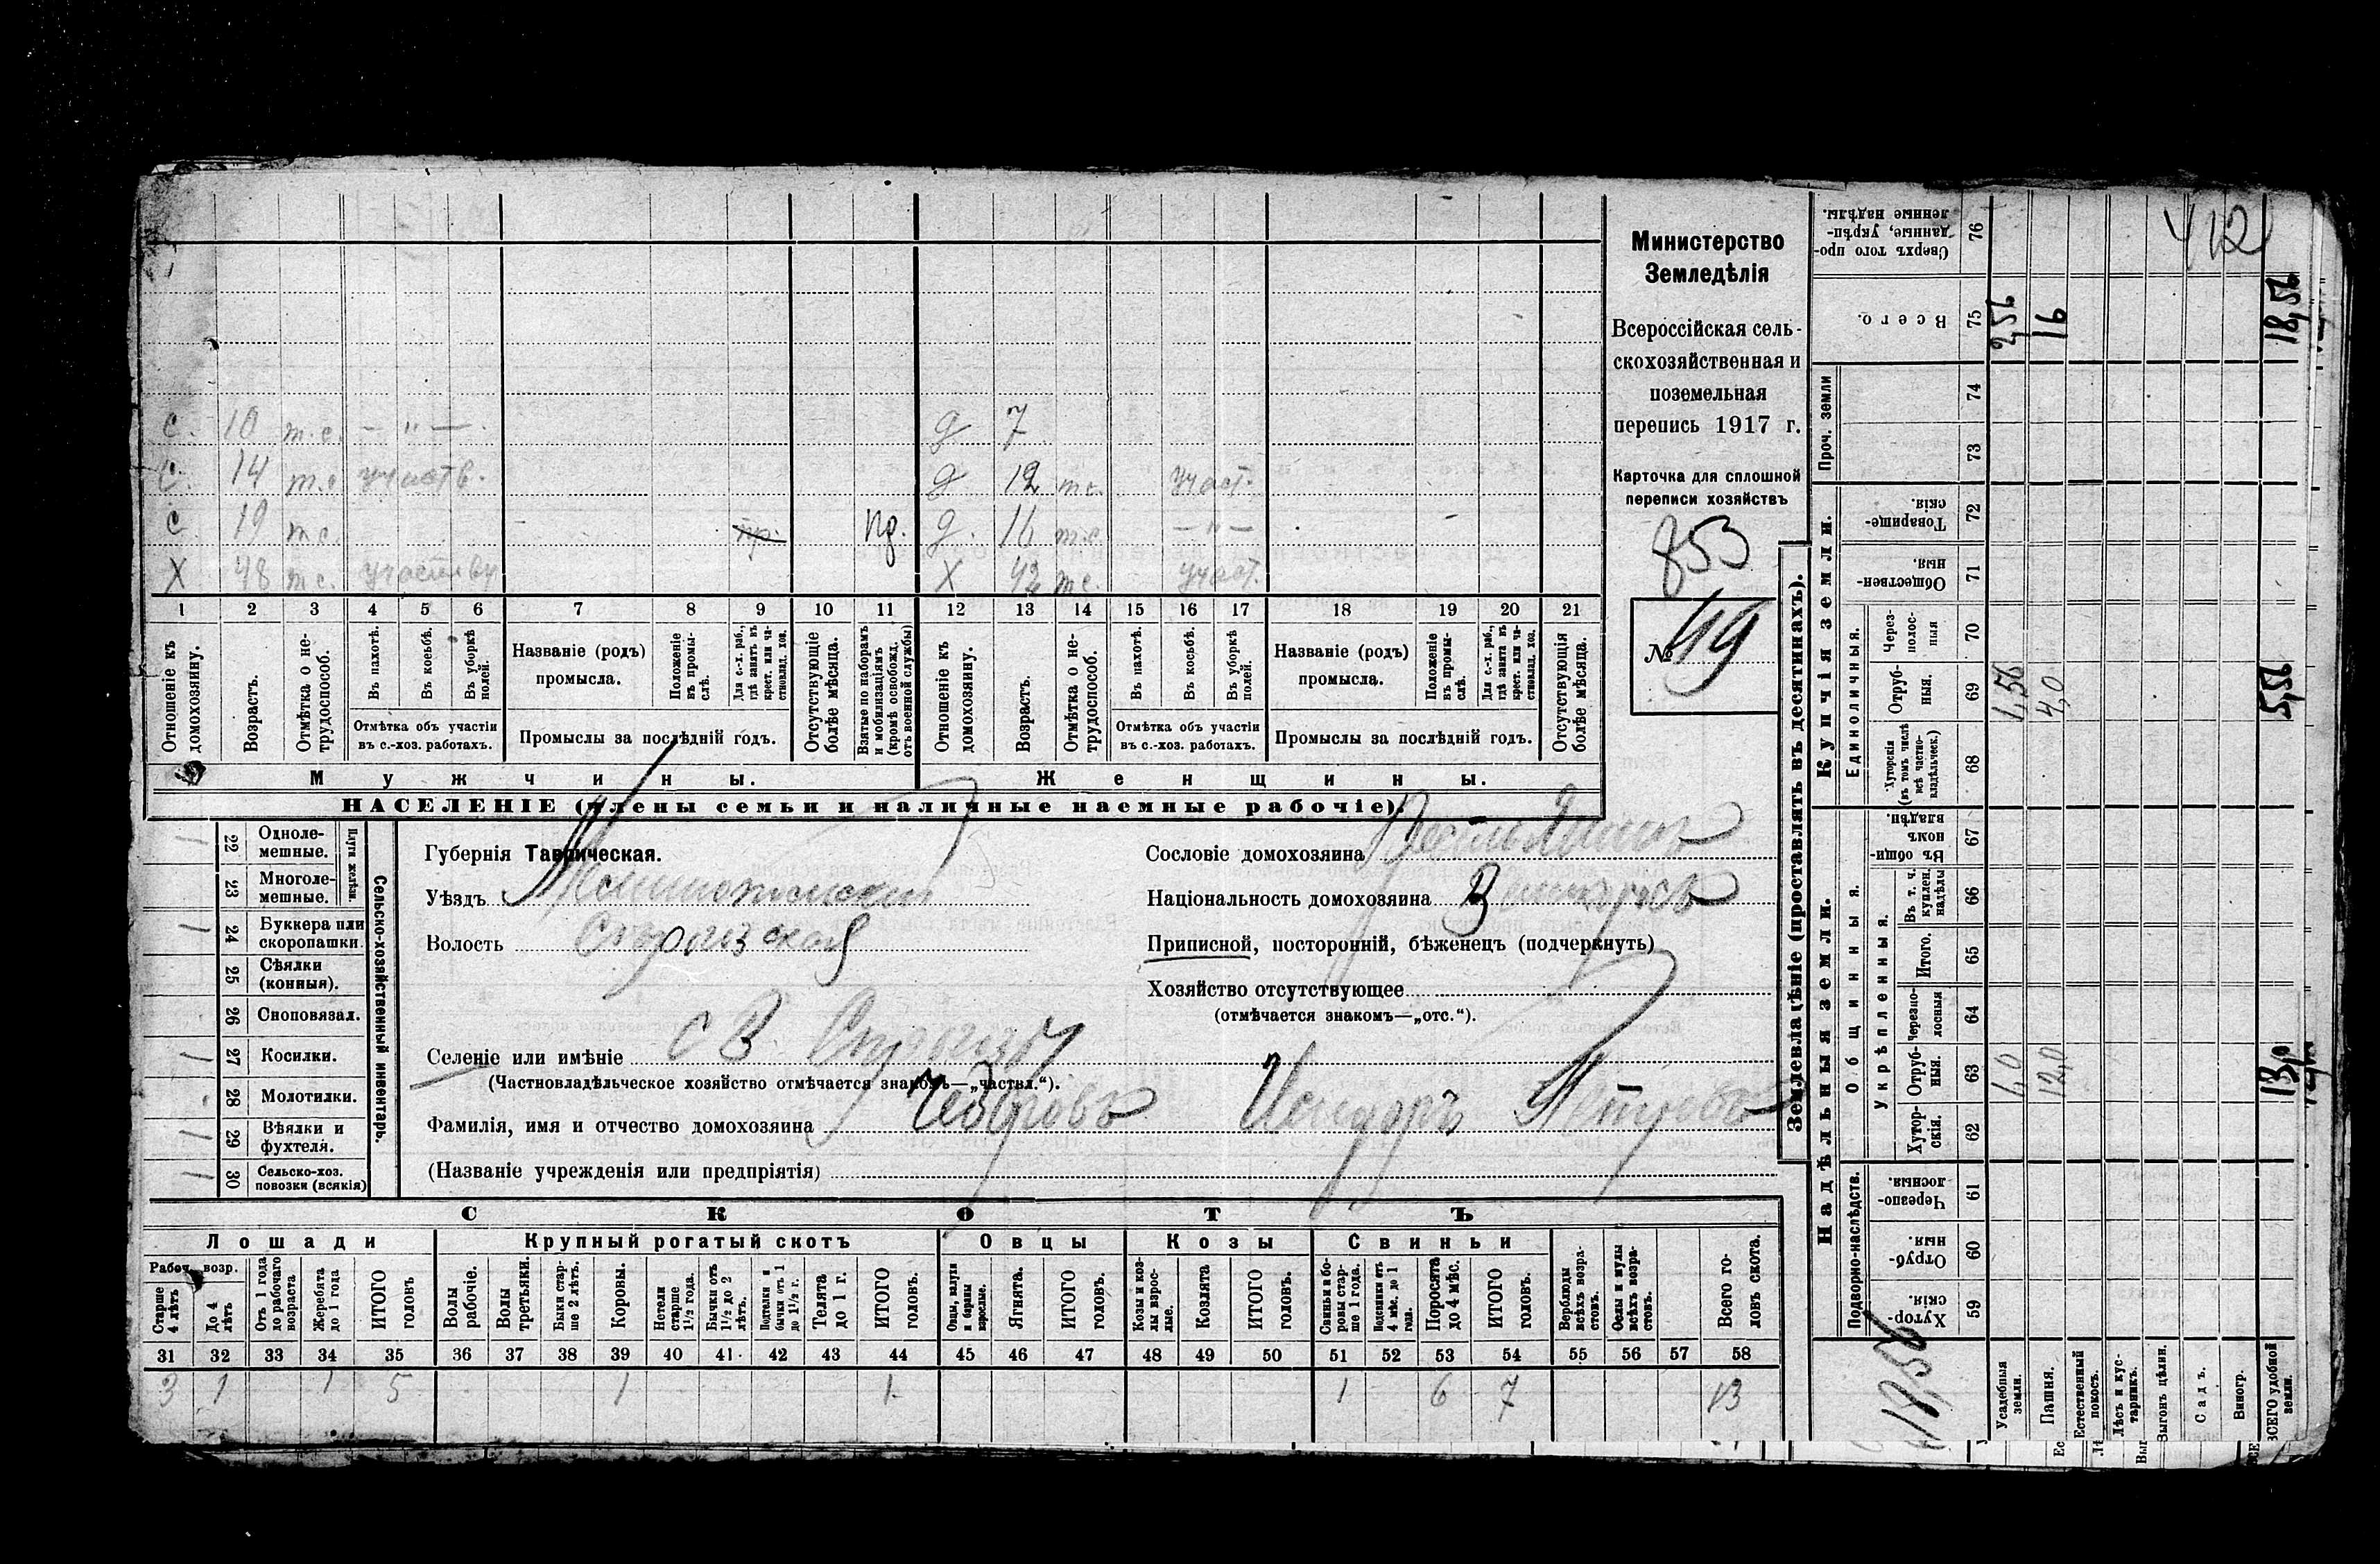 Министерство
Земледѣлія
Всероссійская сель-
скохозяйственная и
поземельная
перепись 1917 г.
Карточка для сплошной
переписи хозяйствъ
853
№ 49
с. 10 т.с. — " —. д 7
с. 14 т.с. участв. д 12 т.с. участ.
с 19 т.с. пр. пд. д. 16 т.с. — " —
х 48 т.с. участву х 42 т.с. участ.
1 2 3 4 5 6 7 8 9 10 11 12 13 14 15 16 17 18 19 20 21
Отношеніе къ домохозяину.
Возрастъ.
Отмѣтка о не-трудоспособ.
Въ пахотѣ.
Въ косьбѣ.
Въ уборкѣ полей.
Отмѣтка объ участіи
въ с.-хоз. работахъ.
Названіе (родъ)
промысла.
Положеніе въ промы-слѣ.
Для с.-х. раб., гдѣ занятъ въ крест. или ча-стновлад. хоз.
Промыслы за послѣдній годъ.
Отсутствующіе болѣе мѣсяца.
Взятые по наборамъ и мобилизаціямъ (кромѣ освобожд. отъ военной службы)
Отношеніе къ домохозяину.
Возрастъ.
Отмѣтка о не-трудоспособ.
Въ пахотѣ.
Въ косьбѣ.
Въ уборкѣ полей.
Отмѣтка объ участіи
въ с.-хоз. работахъ.
Названіе (родъ)
промысла.
Положеніе въ промы-слѣ.
Для с.-х. раб., гдѣ занята въ крест. или ча-стновлад. хоз.
Промыслы за послѣдній годъ.
Отсутствующія болѣе мѣсяца.
Мужчины. Женщины.
НАСЕЛЕНІЕ (члены семьи и наличные наемные рабочіе).
Сельско-хозяйственный инвентарь.
Плуги желѣзн.
1 22 Одноле-мешные.
23 Многоле-мешные.
1 24 Буккера или скоропашки.
25 Сѣялки (конныя).
26 Сноповязал.
1 27 Косилки.
28 Молотилки.
1 29 Вѣялки и фухтеля.
1 30 Сельско-хоз. повозки (всякія)
Губернія Таврическая.
Уѣздъ Мелитопольскій
Волость
Селеніе или имѣніе
(Частновладѣльческое хозяйство отмѣчается знакомъ—„частвл.“).
Фамилія, имя и отчество домохозяина Исидоръ
(Названіе учрежденія или предпріятія)
Сословіе домохозяина
Національность домохозяина
Приписной, посторонній, бѣженецъ (подчеркнуть)
Хозяйство отсутствующее
(отмѣчается знакомъ—„отс.“).
СКОТЪ
Лошади Крупный рогатый скотъ Овцы Козы Свиньи
Рабоч. возр.
Старше 4 лѣтъ
До 4 лѣтъ
Отъ 1 года до рабочаго возраста
Жеребята до 1 года
ИТОГО головъ
Волы рабочіе.
Волы третьяки.
Быки стар-ше 2 лѣтъ.
Коровы.
Нетели старше 1½ года.
Бычки отъ 1½ до 2 лѣтъ.
Подтелки и бычки отъ 1 до 1½ г.
Телята до 1 г.
ИТОГО головъ.
Овцы, валухи и бараны взрослые.
Ягнята.
ИТОГО головъ.
Козы и коз-лы взрос-лые.
Козлята
ИТОГО головъ.
Свиньи и бо-ровы стар-ше 1 года.
Подсвинки отъ 4 мѣс. до 1 года.
Поросята до 4 мѣс.
ИТОГО головъ.
Верблюды всѣхъ возра-стовъ.
Ослы и мулы всѣхъ возра-стовъ.
Всего го-ловъ скота.
31 32 33 34 35 36 37 38 39 40 41 42 43 44 45 46 47 48 49 50 51 52 53 54 55 56 57 58
3 1 1 5 1 1 1 6 7 13
Землевладѣніе (проставлять въ десятинахъ).
Надѣльныя земли. Купчія земли. Проч. земли
Подворно-наслѣдств. Общинныя. Укрѣпленныя. Единоличныя.
76 Сверхъ того про-данные, укрѣп-ленные надѣлы.
75 Всего. 2,56 16 18,56
74
73
72 Товарище-скія.
71 Обществен-ныя.
70 Через-полос-ныя
69 Отруб-ныя. 1,56 4,0 5,56
68 Хуторскія (въ томъ числѣ всѣ частно-владѣльческ.)
67 Въ общи-номъ владѣн.
66 Въ т. ч. куплен. надѣлы
65 Итого.
64 Черезпо-лосныя
63 Отруб-ныя. 1,0 12,0 13,0
62 Хутор-скія.
61 Черезпо-лосныя.
60 Отруб-ныя.
59 Хутор-скія.
Усадебныя земли.
Пашня.
Естественный покосъ.
Лѣсъ и кус-тарникъ.
Выгонъ цѣлин.
Садъ.
Виногр.
ВСЕГО удобной земли.
18,56
412